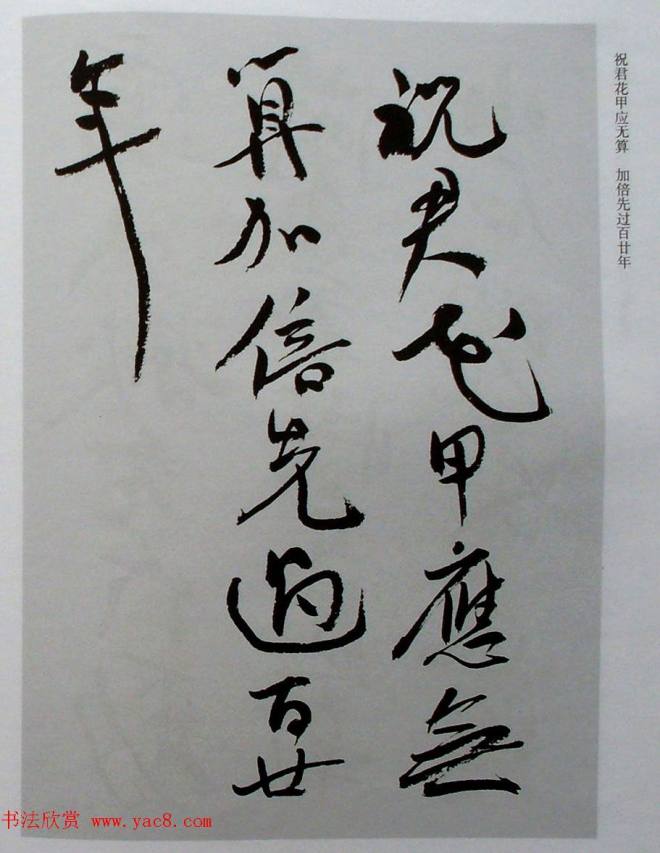 祝君花甲應無
算加倍先過百廿
年
祝君花甲应无算 加倍先过百廿年
书法欣赏 www.yac8.com